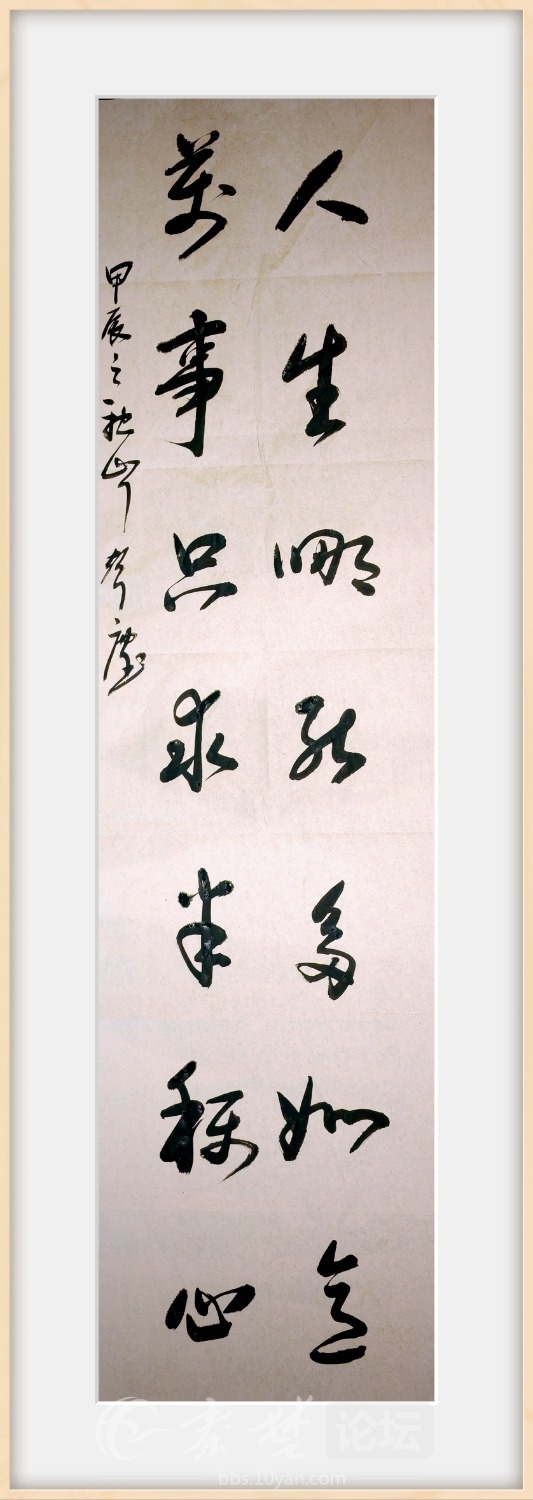 人生哪能多如意
萬事只求半称心
甲辰之秋
秦楚论坛
bbs.10yan.com